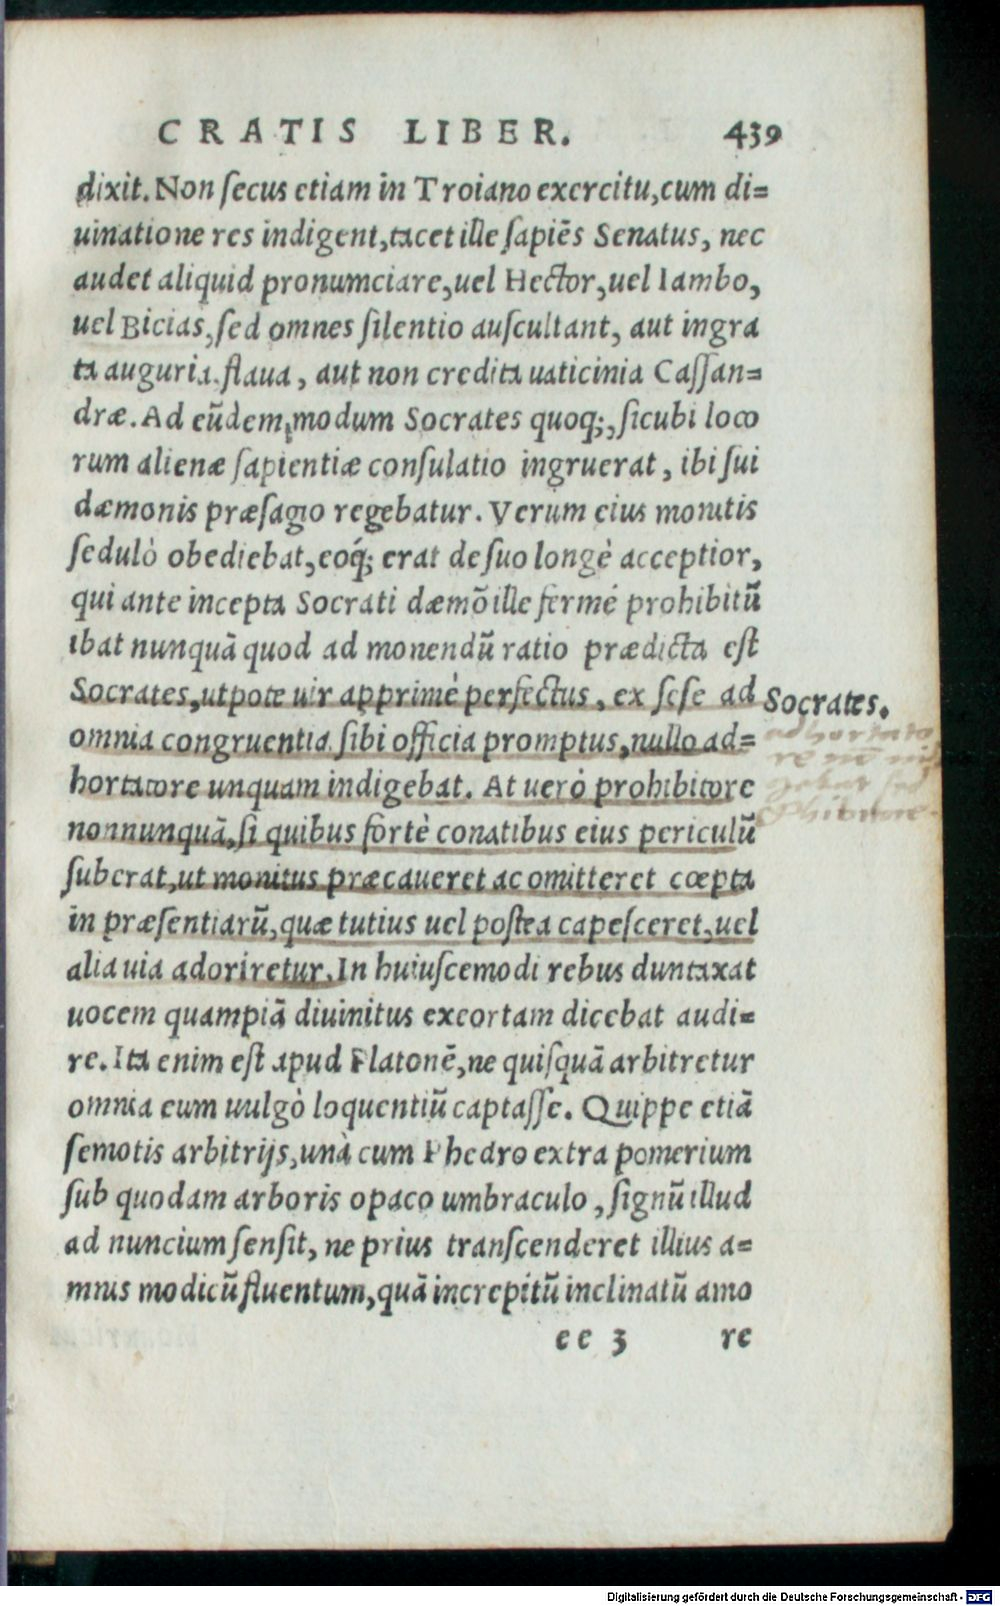 CRATIS LIBER. 439
dixit. Non ſecus etiam in Troiano exercitu, cum di=
uinatione res indigent, tacet ille ſapiẽs Senatus, nec
audet aliquid pronumciare, uel Hector, uel Iambo,
uel Bicias, ſed omnes ſilentio auſcultant, aut ingra
ta auguria flaua, aut non credita uaticinia Caſſan=
dræ. Ad eũdem modum Socrates quoq;, ſicubi loco
rum alienæ ſapientiæ conſulatio ingruerat, ibi ſui
dæmonis præſagio regebatur. Verum eius monitis
ſedulò obediebat, eoq́; erat de ſuo longè acceptior,
qui ante incepta Socrati dæmõ ille fermé prohibitũ
ibat nunquã quod ad monendũ ratio prædicta eſt
Socrates, utpote uir apprimè perfectus, ex ſeſe ad
Socrates.
omnia congruentia ſibi officia promptus, nullo ad=
hortatore unquam indigebat. At uerò prohibitore
nonnunquã, ſi quibus fortè conatibus eius periculũ
ſuberat, ut monitus præcaueret ac omitteret cœpta
in præſentiarũ, quæ tutius uel poſtea capeſceret, uel
alia uia adoriretur. In huiuſcemodi rebus duntaxat
uocem quampiã diuinitus exortam dicebat audi=
re. Ita enim eſt apud Platonẽ, ne quiſquã arbitretur
omnia eum uulgò loquentiũ captaſſe. Quippe etiã
ſemotis arbitrijs, unà cum Phedro extra pomerium
ſub quodam arboris opaco umbraculo, ſignũ illud
ad nuncium ſenſit, ne prius tranſcenderet illius a=
mnis modicũ fluentum, quã increpitũ inclinatũ amo
ee 3 re
adhortato
re nõ indi
gebat ſed
Digitalisierung gefördert durch die Deutsche Forschungsgemeinschaft - DFG